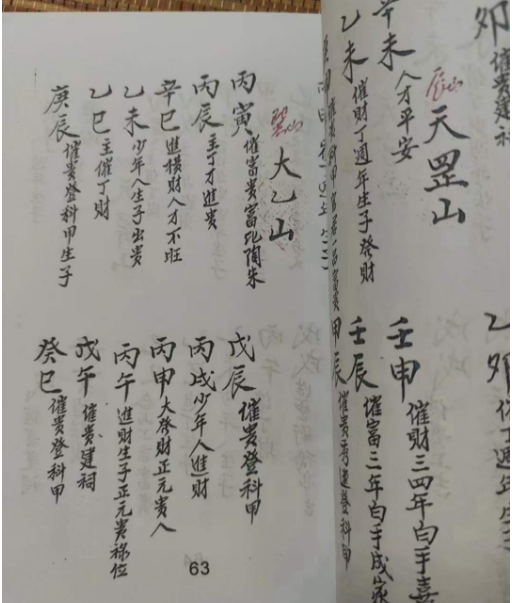 卯 催貴建祠
辰山 天罡山
辛未 人才平安
乙未 催財丁週年生子發財
乙卯
壬申 催財三四年白手喜
壬辰 催富三年白手成家
甲辰 催貴秀進登科甲
巽山 大乙山
丙寅 催富貴富比陶朱
丙辰 主丁才進貴
辛巳 進橫財人才不旺
乙未 少年人生子出貴
乙巳 主催丁財
庚辰 催貴登科甲生子
戊辰 催貴登科甲
丙戌 少年人進財
丙申 大發財正元貴人
丙午 進財生子正元貴祿位
戊午 催貴建祠
癸巳 催貴登科甲
63